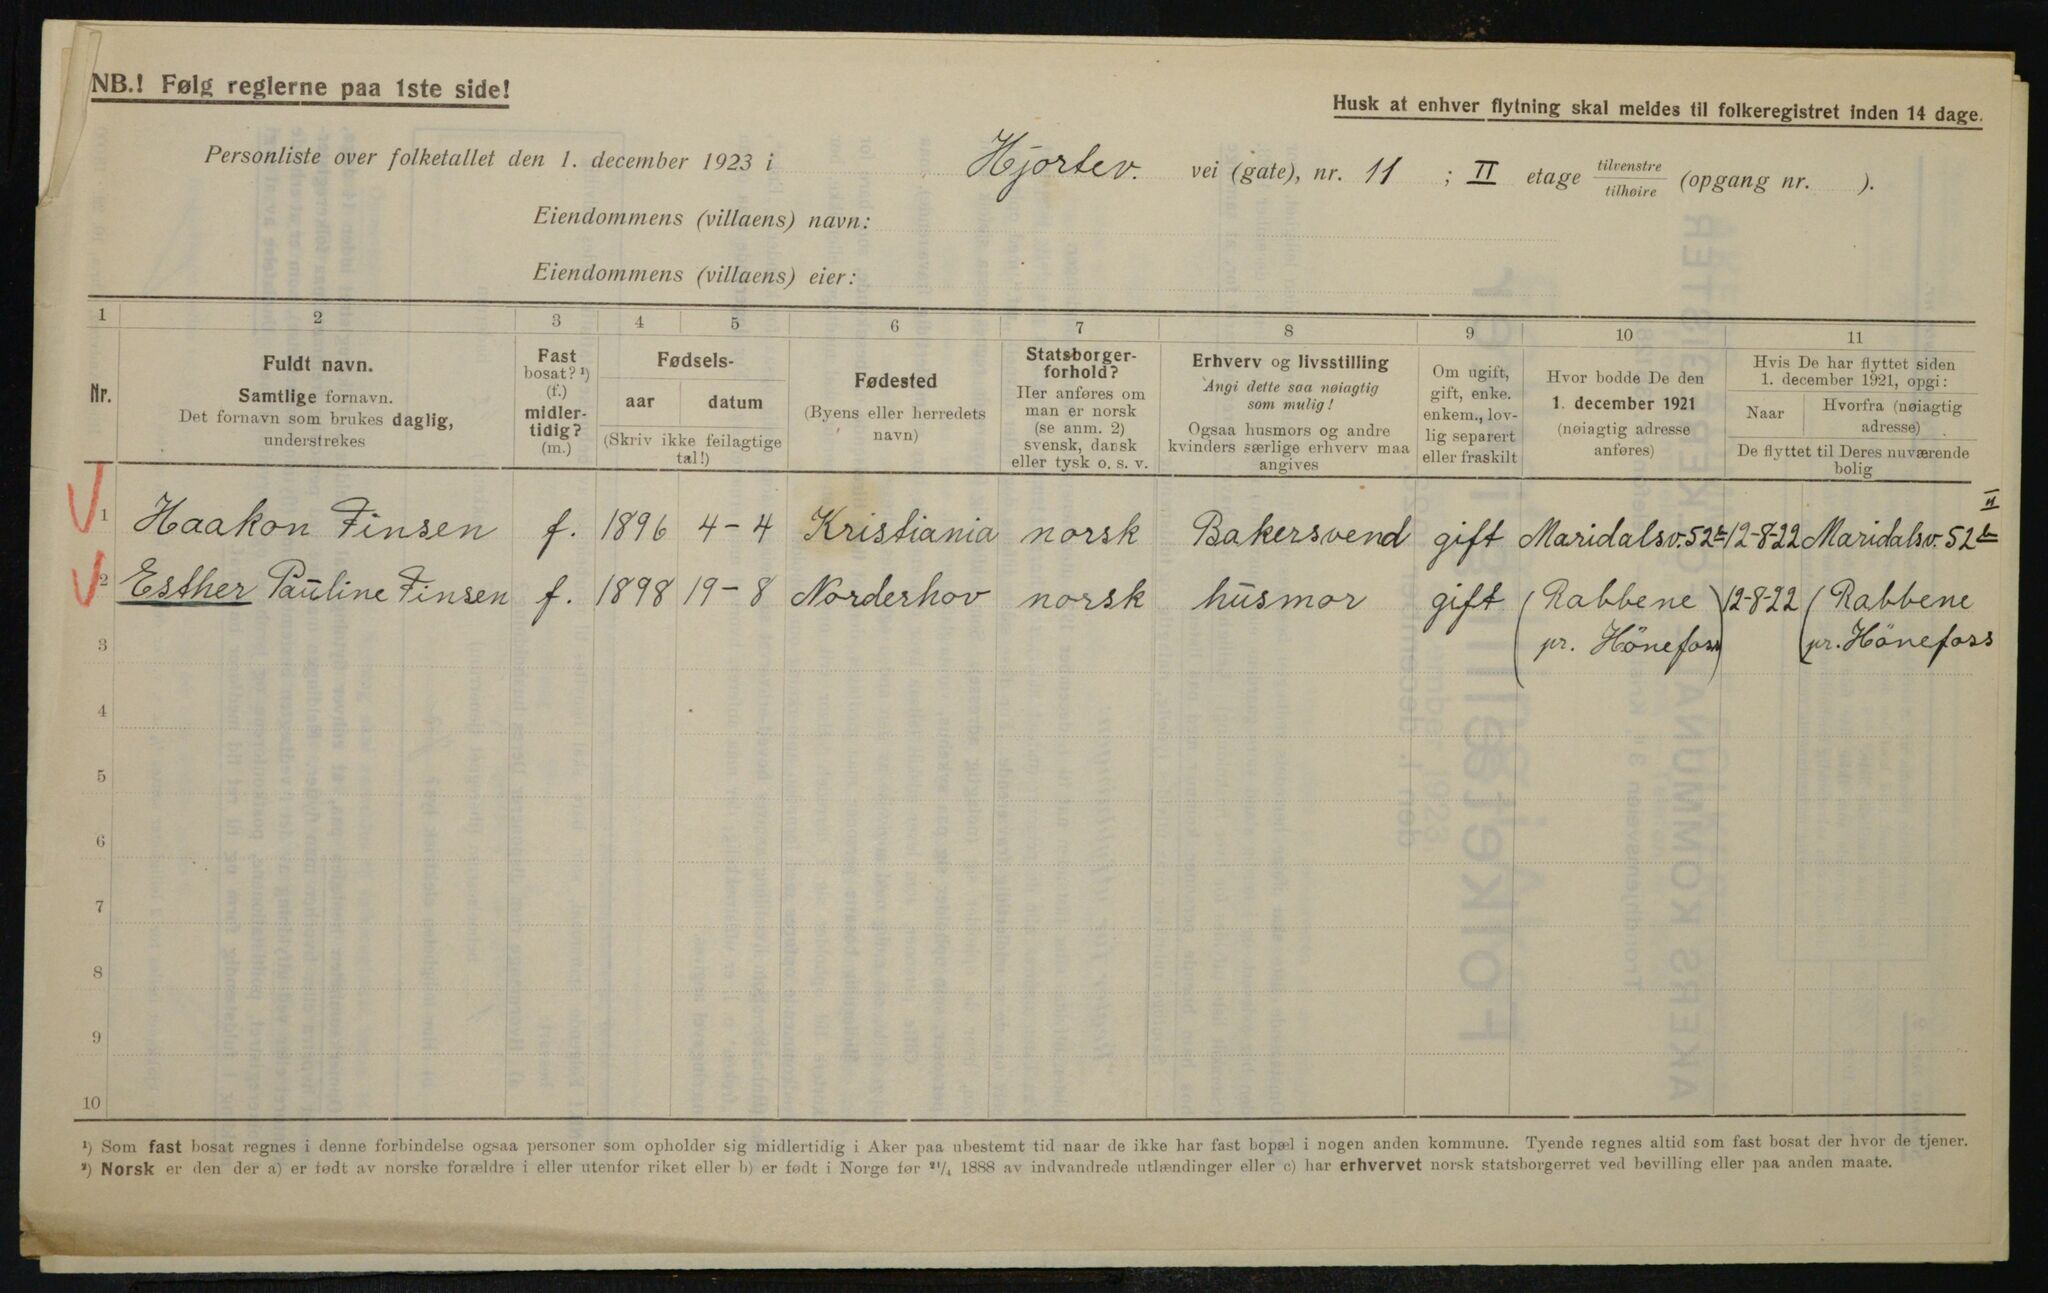 NB.! Følg reglerne paa 1ste side!
Husk at enhver flytning skal meldes til folkeregistret inden 14 dage.
Personliste over folketallet den 1. december 1923 i Hjortev. vei (gate), nr. 11 ; II etage tilvenstre/tilhøire (opgang nr. ).
Eiendommens (villaens) navn:
Eiendommens (villaens) eier:
1 2 3 4 5 6 7 8 9 10 11
Nr.
Fuldt navn.
Samtlige fornavn.
Det fornavn som brukes daglig,
understrekes
Fast
bosat? ¹)
(f.)
midler-
tidig?
(m.)
Fødsels-
aar datum
(Skriv ikke feilagtige
tal!)
Fødested
(Byens eller herredets
navn)
Statsborger-
forhold?
Her anføres om
man er norsk
(se anm. 2)
svensk, dansk
eller tysk o. s. v.
Erhverv og livsstilling
Angi dette saa nøiagtig
som mulig!
Ogsaa husmors og andre
kvinders særlige erhverv maa
angives
Om ugift,
gift, enke.
enkem., lov-
lig separert
eller fraskilt
Hvor bodde De den
1. december 1921
(nøiagtig adresse
anføres)
Hvis De har flyttet siden
1. december 1921, opgi:
Naar
Hvorfra (nøiagtig
adresse)
De flyttet til Deres nuværende
bolig
II
1 Haakon Finsen f. 1896 4-4 Kristiania norsk Bakersvend gift Maridalsv. 52b 12-8-22 Maridalsv. 52b
2 Esther Pauline Finsen f. 1898 19-8 Norderhov norsk husmor gift (Rabbene) 12-8-22 (Rabbene
3 pr. Hönefoss pr. Hönefoss
4
5
6
7
8
9
10
¹) Som fast bosat regnes i denne forbindelse ogsaa personer som opholder sig midlertidig i Aker paa ubestemt tid naar de ikke har fast bopæl i nogen anden kommune. Tyende regnes altid som fast bosat der hvor de tjener.
²) Norsk er den der a) er født av norske forældre i eller utenfor riket eller b) er født i Norge før 21/4 1888 av indvandrede utlændinger eller c) har erhvervet norsk statsborgerret ved bevilling eller paa anden maate.